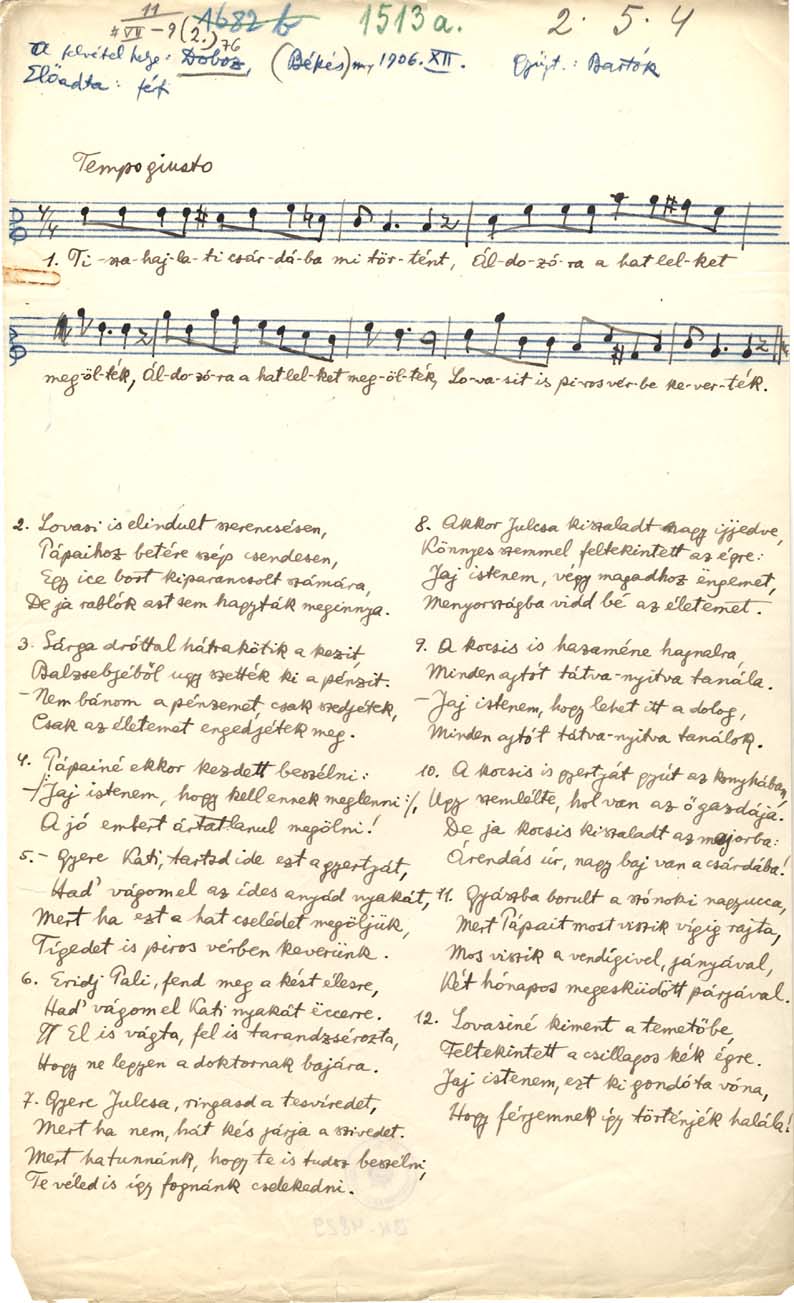 11
VII - 9 (2.) 76
1682 b
1513a.
2. 5. 4
A felvétel helye: Doboz, (Békés) m, 1906. XII. Gyűjt.: Bartók
Előadta: férfi
Tempo giusto
4/4
1. Ti-sza-haj-la-ti csár-dá-ba mi tör-tént, Ál-do-zó-ra a hat lel-ket
meg-öl-ték, Ál-do-zó-ra a hat lel-ket meg-öl-ték, Lo-va-sit is pi-ros vér-be ke-ver-ték.
2. Lovasi is elindult szerencsésen,
Pápaihoz betére szép csendesen,
Egy ice bort kiparancsolt számára,
De ja rablók azt sem hagyták meginnya.
3. Sárga dróttal hátrakötik a kezit,
Balzsebjéből ugy szették ki a pénzit.
- Nem bánom a pénzemet, csak szedjétek,
Csak az életemet engedjétek meg.
4. Pápainé ekkor kezdett beszélni:
-/: Jaj istenem, hogy kell ennek meglenni :/,
A jó embert ártatlanul megölni!
5. - Gyere Kati, tartsd ide ezt a gyertyát,
Had' vágom el az ídes anyád nyakát,
Mert ha ezt a hat cselédet megöljük,
Tígedet is piros vérben keverünk.
6. Eridj Pali, fend meg a kést élesre,
Had' vágom el Kati nyakát ëccerre.
El is vágta, fel is tarandzsérozta,
Hogy ne legyen a doktornak bajára.
7. Gyere Julcsa, ringasd a tesvíredet,
Mert ha nem, hát kés járja a szivedet.
Mert ha tunnánk, hogy te is tudsz beszélni,
Te véled is így fognánk cselekedni.
8. Akkor Julcsa kiszaladt nagy ijjedve,
Könnyes szemmel feltekintett az égre:
Jaj istenem, végy magadhoz éngemet,
Menyországba vidd bé az életemet.
9. A kocsis is hazaméne hajnalra,
Minden ajtót tátva-nyitva tanála.
- Jaj istenem, hogy lehet itt a dolog,
Minden ajtót tátva-nyitva tanálok.
10. A kocsis is gyertját gyút az konyhában,
Ugy szemlélte, hol van az ő gazdája.
De ja kocsis kiszaladt az majorba:
Árendás úr, nagy baj van a csárdába!
11. Gyászba borult a szónoki nagyucca,
Mert Pápait most viszik vígig rajta,
Mos viszik a vendígivel, jányával,
Két hónapos megesküdött párjával.
12. Lovasiné kiment a temetőbe,
Feltekintett a csillagos kék égre.
Jaj istenem, ezt ki gondóta vóna,
Hogy férjemnek így történjék halála!